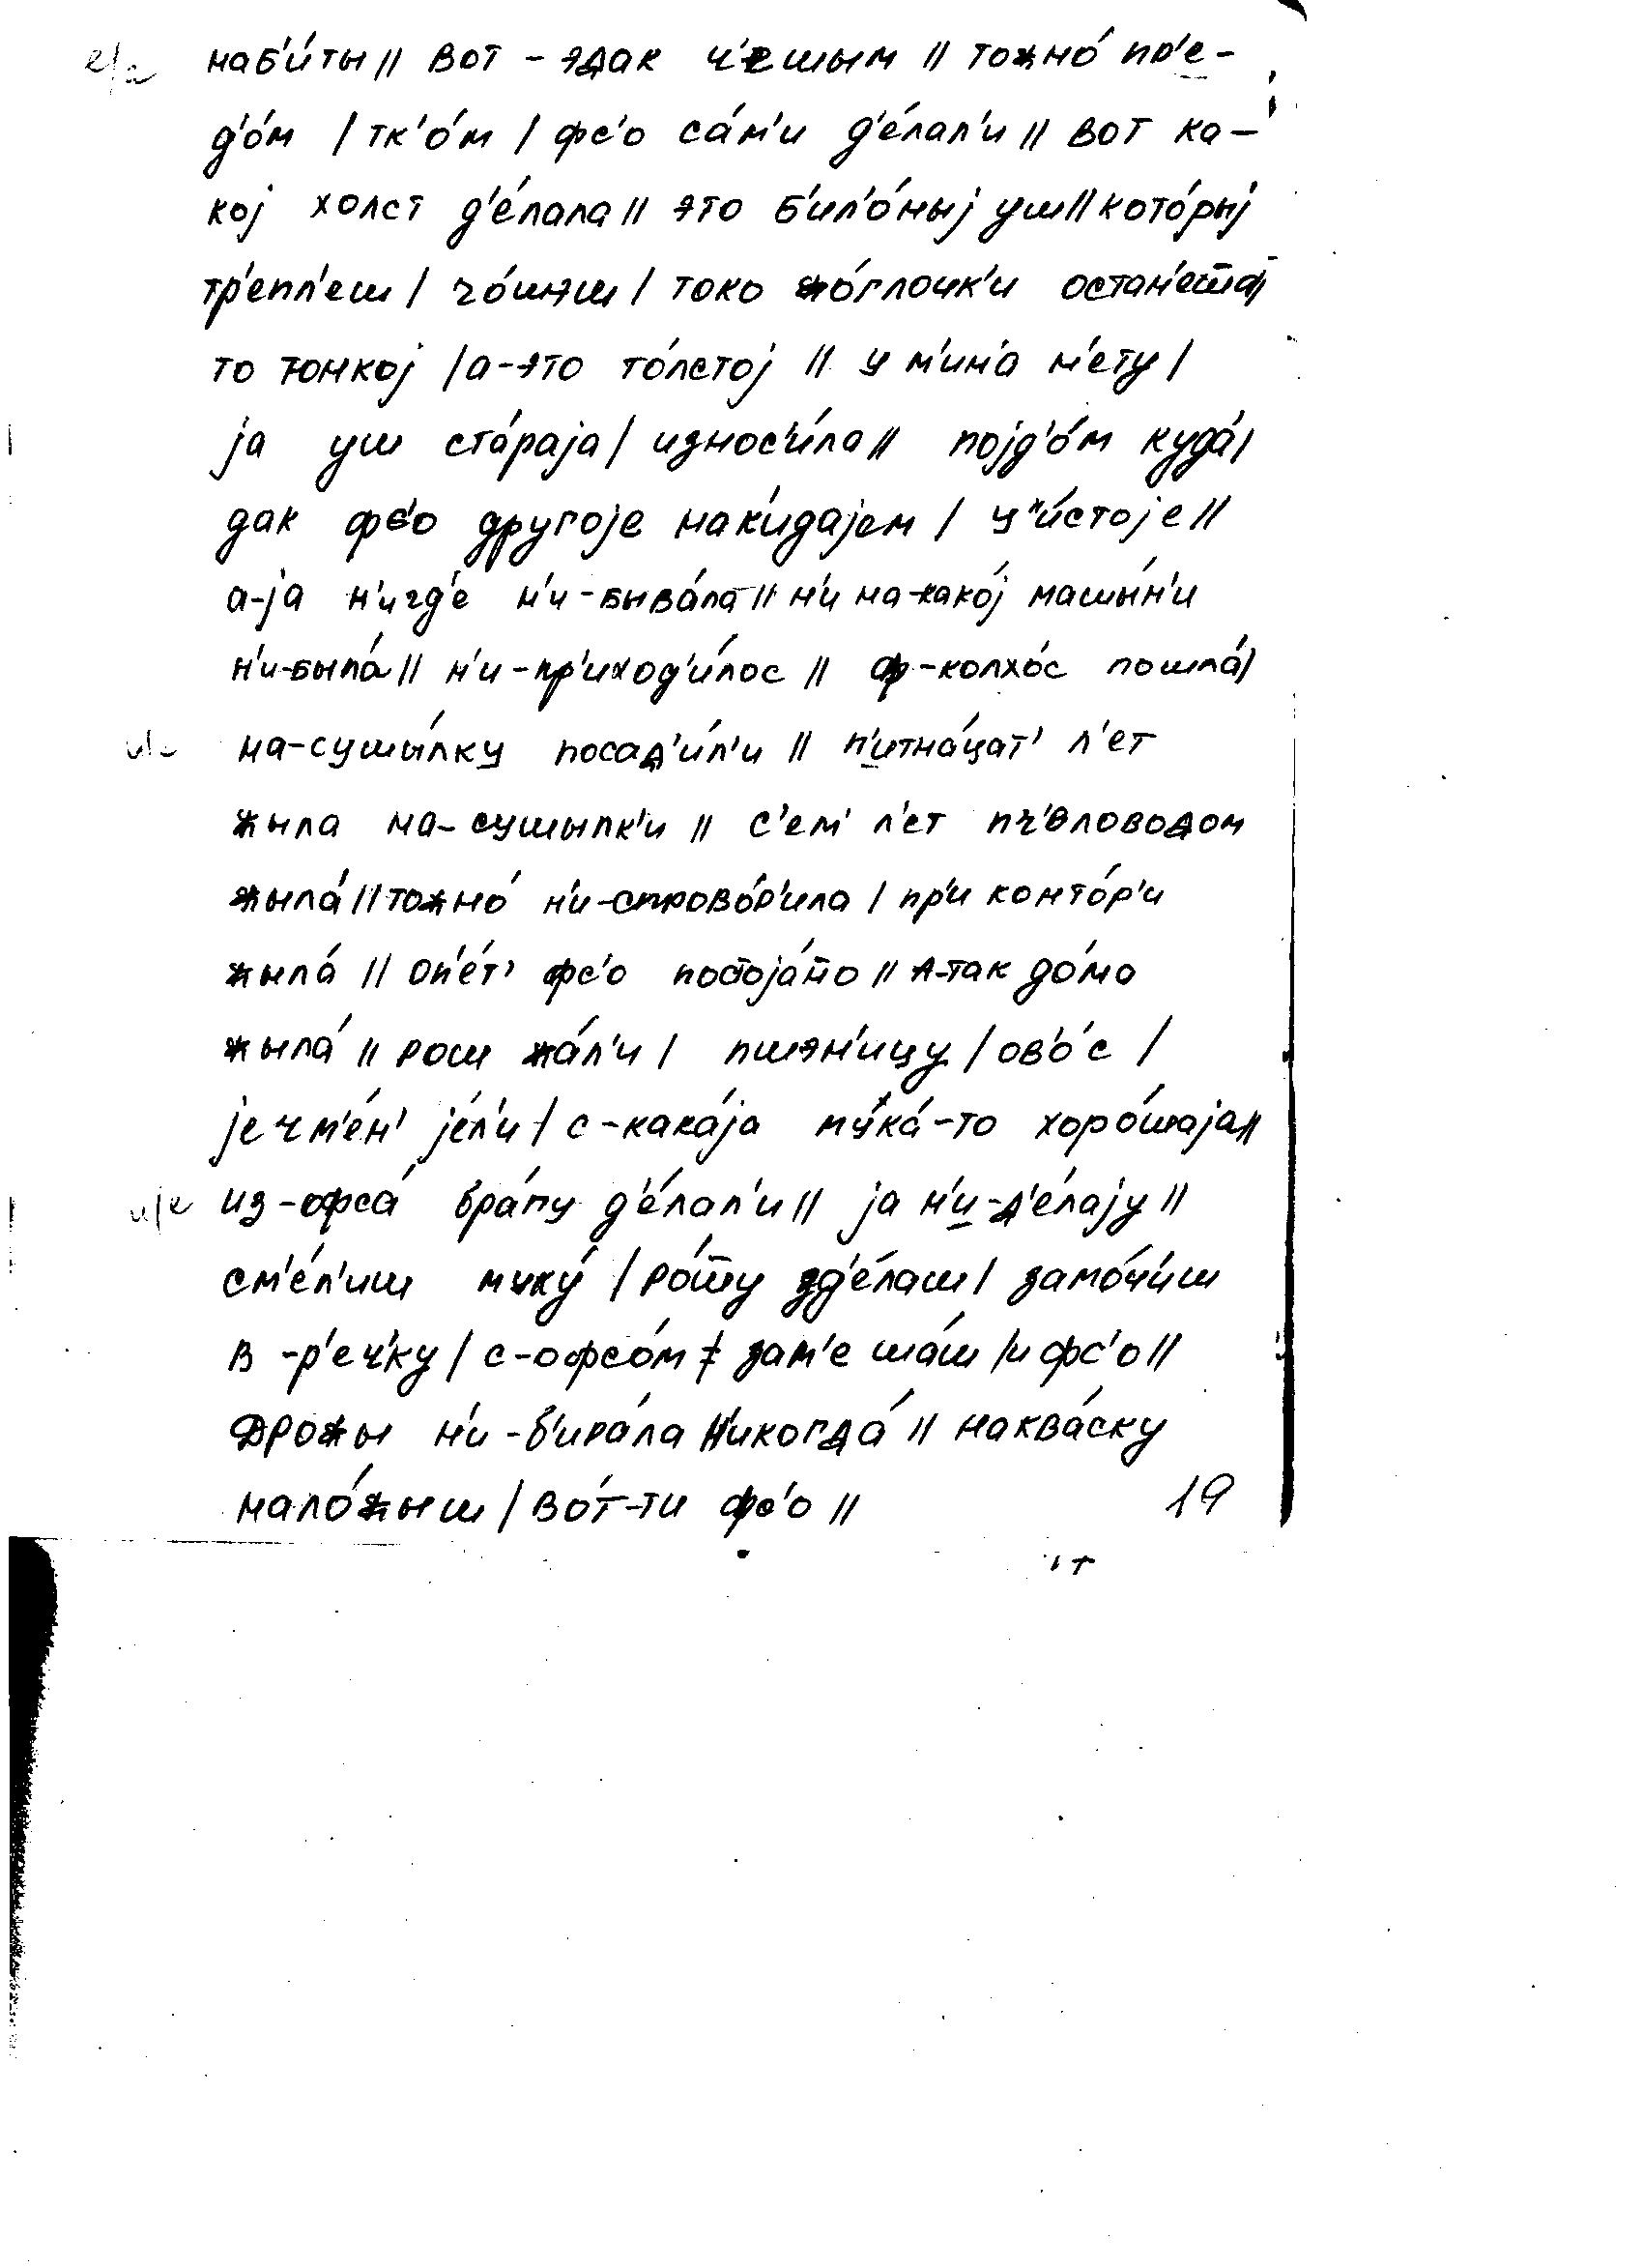 е/а наб'и́ты || вот - эдак ч'ешым || тожно́ пр'е-
д'о́м / тк'о́м / фс'о са́м'и д'е́лал'и || вот ка-
кој холст д'е́лала || это б'ил'о́ныј уш || кото́рыј
тр'епл'еш / чо́шэш / токо жо́глочк'и остан'еm̄а/
то тонкој / а-это то́лстој || у м'ин'а н'ету /
ја уш ста́раја / износ'и́ла || појд'о́м куда́/
дак фс'о другоје нак'и́дајем / ч'и́стоје ||
а-ја н'игд'е́ н'и-быва́ла || н'и на-како́ј машы́н'и
н'и-была́ || н'и-пр'иход'и́лос || ф-колхо́с пошла́/
и/е на-сушы́лку посад'и́л'и || п'итна́цат' л'ет
жыла на-сушылк'и || с'ем' л'ет пч'еловодом
жыла́ || тожно́ н'и-спрово́р'ила / пр'и конто́р'и
жыла́ || оп'е́т' фс'о постоја́н̄о || а-так до́ма
жыла́ || рош жа́л'и / пшэн'ицу / ов'о́с /
јечм'е́н' је́л'и / с-кака́ја му́ка́-то хоро́шаја ||
и/е из-офса́ бра́гу д'е́лал'и || ја н'и-д'е́лају ||
см'е́л'иш муку́ / ро́m̄у зд'е́лаш / замо́ч'иш
в-р'еч'ку / с-офсо́м / зам'еша́ш / и фс'о ||
дрожы н'и-б'ира́ла н'икогда́ || наква́ску
нало́жыш / во́т-ти фс'о ||
19